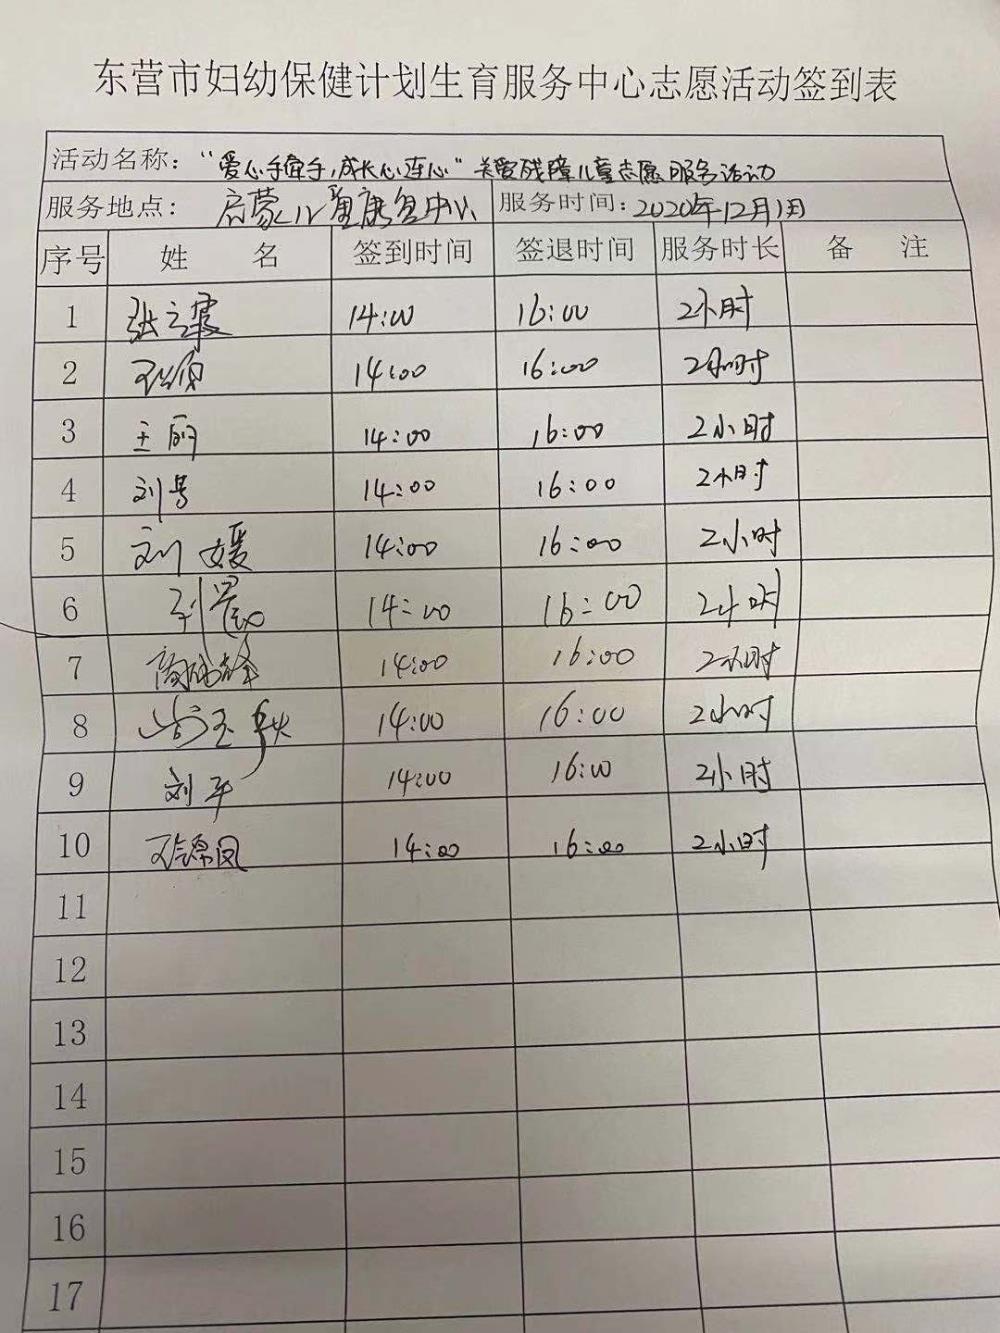 东营市妇幼保健计划生育服务中心志愿活动签到表
活动名称：“爱心手牵手，成长心连心”关爱残障儿童志愿服务活动
服务地点：启蒙儿童康复中心 服务时间：2020年12月1日
序号 姓 名 签到时间 签退时间 服务时长 备 注
1 张之霞 14:00 16:00 2小时
2 14:00 16:00 2小时
3 王丽 14:00 16:00 2小时
4 刘 14:00 16:00 2小时
5 刘媛 14:00 16:00 2小时
6 14:00 16:00 2小时
7 14:00 16:00 2小时
8 14:00 16:00 2小时
9 刘平 14:00 16:00 2小时
10 14:00 16:00 2小时
11
12
13
14
15
16
17